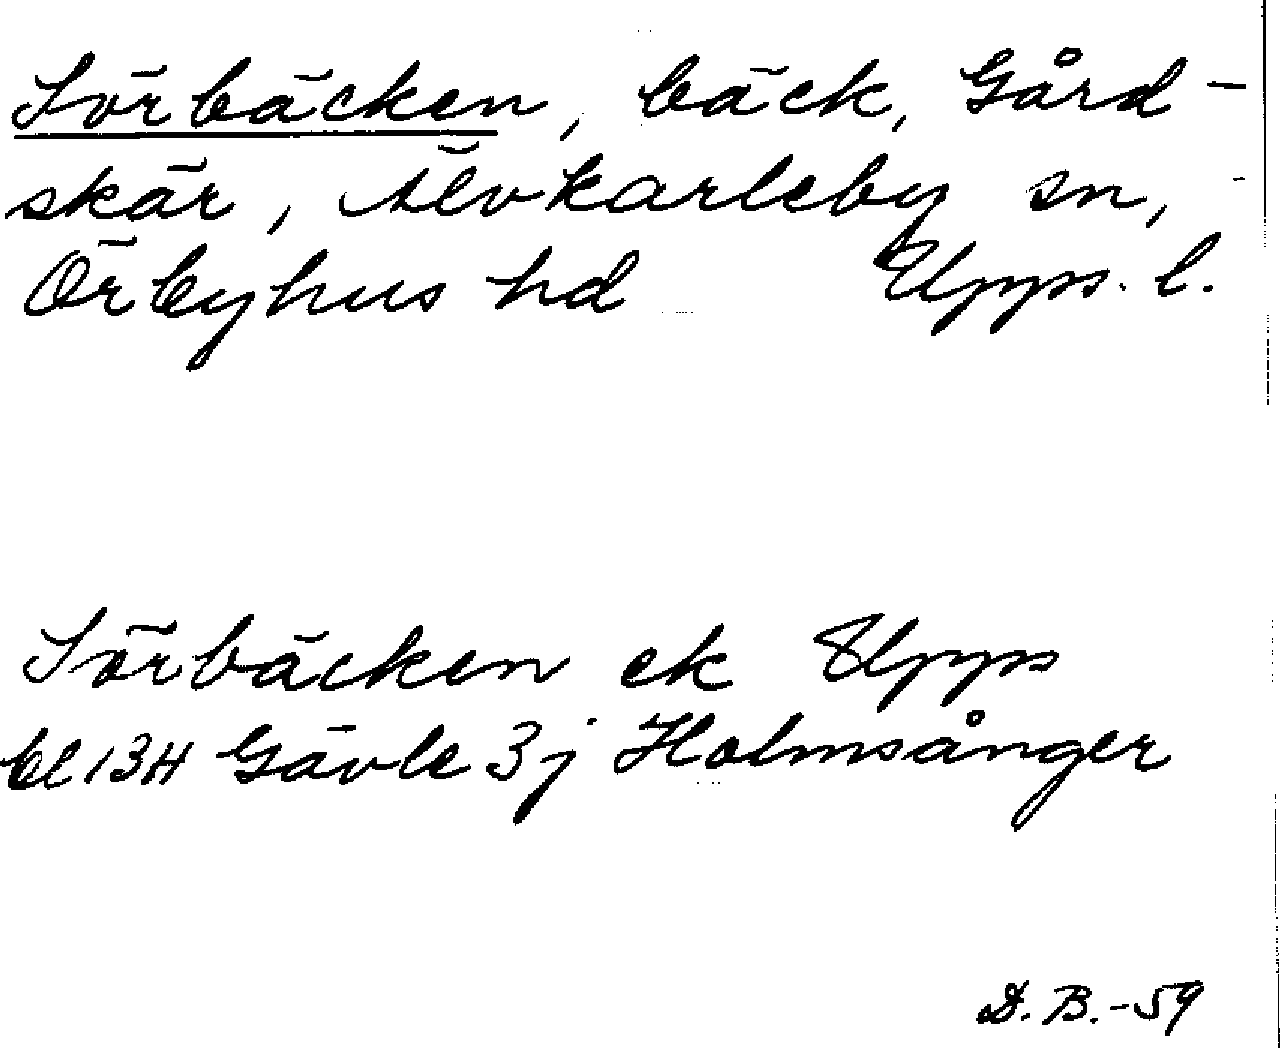 Sörbäcken, bäck, Gård-
skär, Älvkarleby sn,
Örbyhus hd Upps. l.
Sörbäcken ek Upps
bl 13H Gävle 3j Holmsånger
D. B. -59